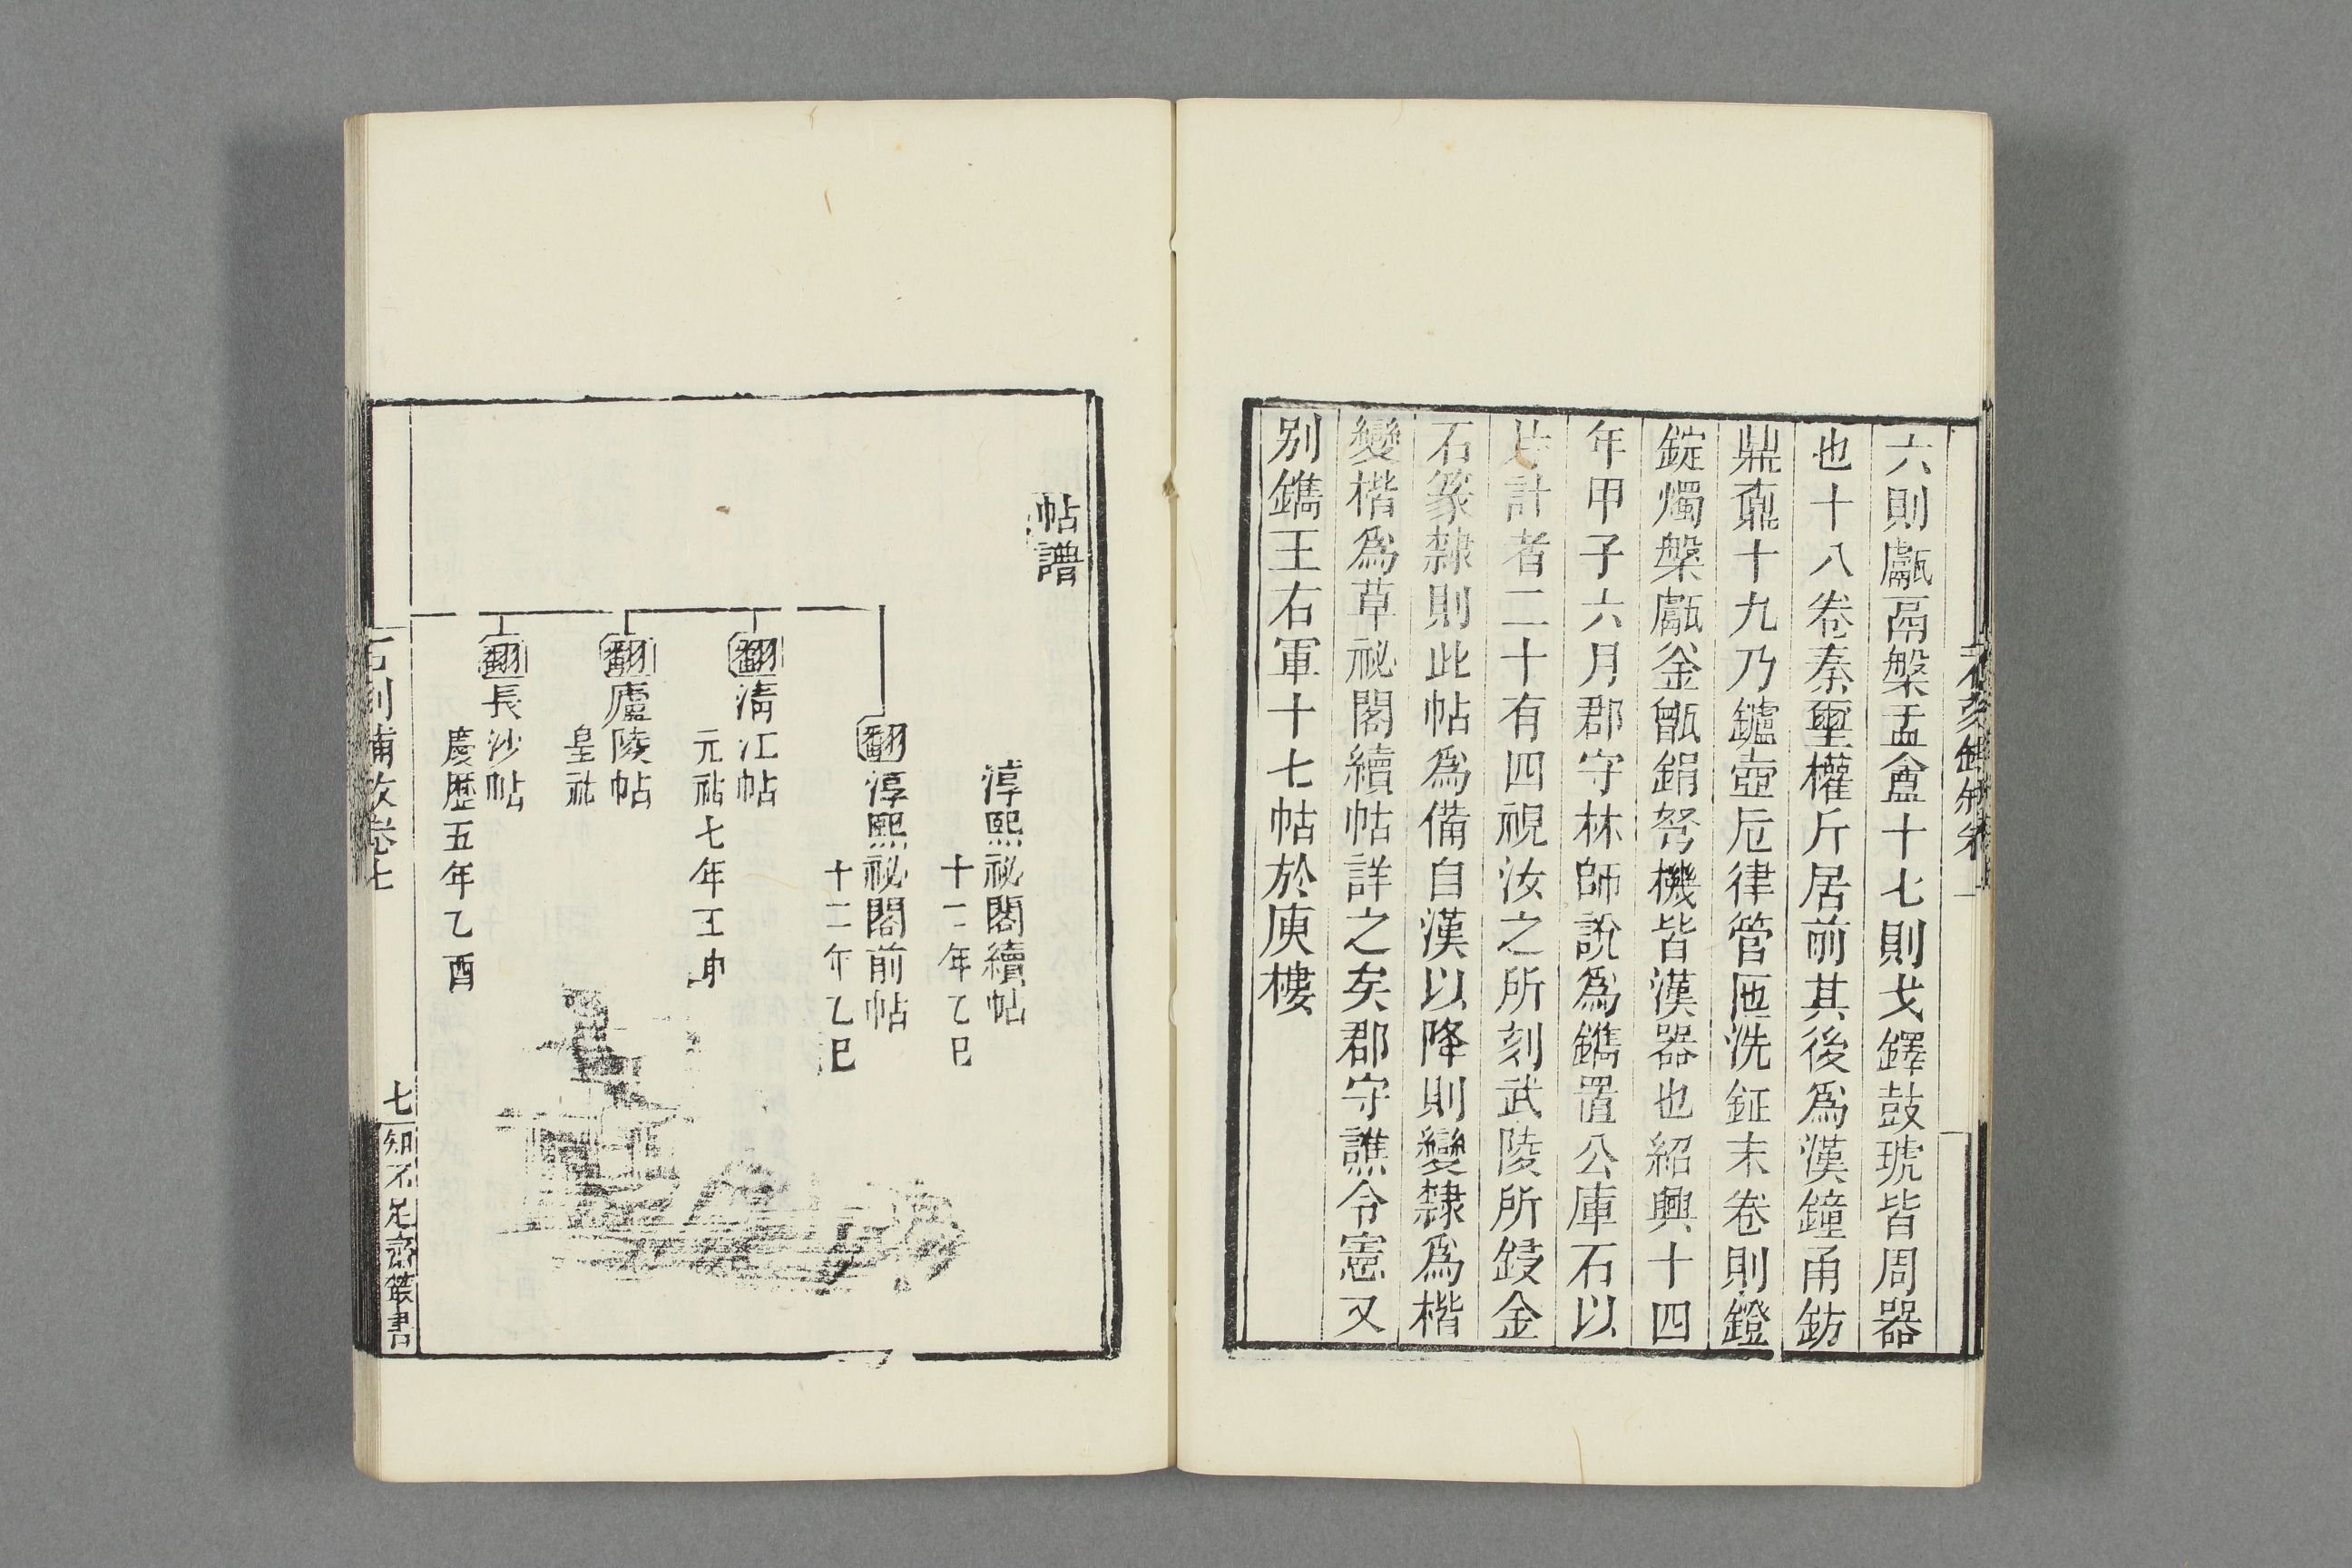 六則甗鬲槃盂盦十七則戈鐸鼓琥皆周器
也十八卷秦璽權斤居前其後為漢鐘甬鈁
鼎鼐十九乃鑪壺卮律管匜洗鉦末卷則鐙
錠燭槃甗釜甑鋗弩機皆漢器也紹興十四
年甲子六月郡守林師說為鐫置公庫石以
片計者二十有四視汝之所刻武陵所鋟金
石篆隸則此帖為備自漢以降則變隸為楷
變楷為草祕閣續帖詳之矣郡守譙令憲又
別鐫王右軍十七帖於庾樓
帖譜
淳熙祕閣續帖
十二年乙巳
翻淳熙祕閣前帖
十二年乙巳
翻清江帖
元祐七年壬申
翻廬陵帖
皇祐
翻長沙帖
慶歷五年乙酉
石刻鋪敘卷上
七
知不足齋叢書